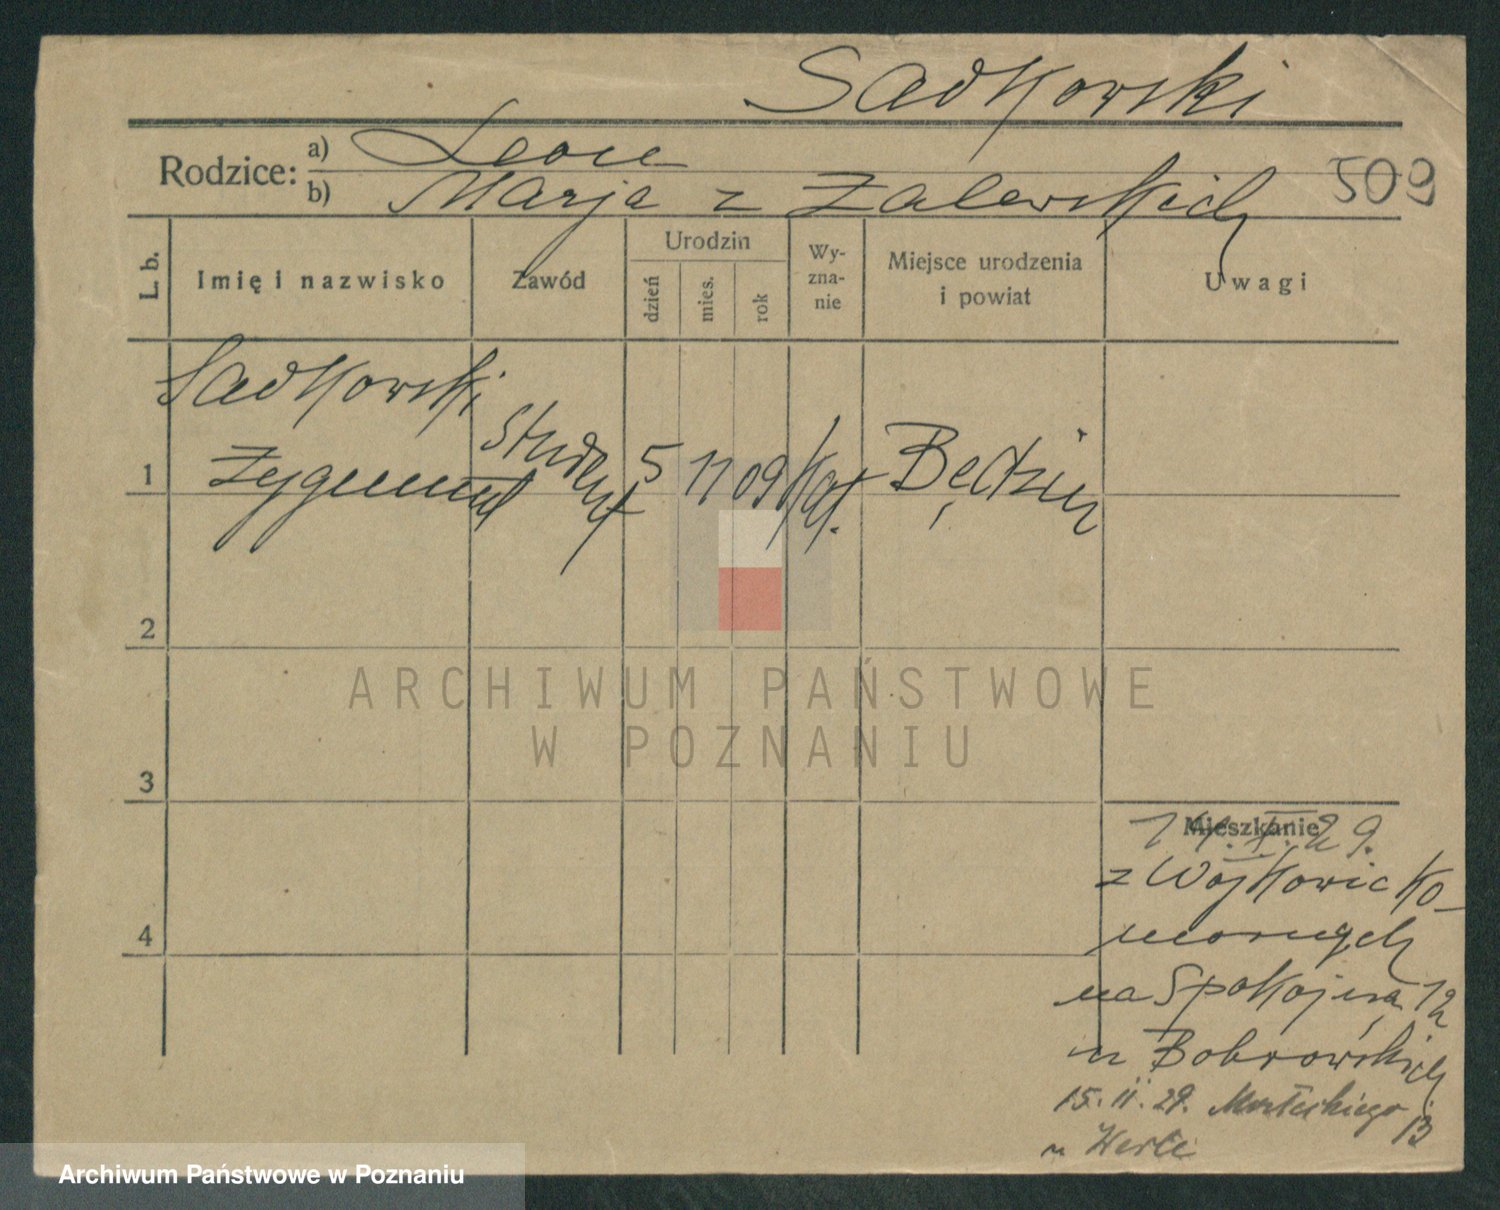 Sadkowski
Rodzice: a) Leon
b) Marja z Zalewskich
509
L. b.
Imię i nazwisko
Zawód
Urodzin
dzień
mies.
rok
Wy-
zna-
nie
Miejsce urodzenia
i powiat
Uwagi
1
Sadkowski
Zygmunt
Student
5
11
09
Kat.
Będzin
2
3
4
Mieszkanie
z Wojkowic Ko-
mornych
na Spokojną 12
u Bobrowskich
15.II.29.
13
u
ARCHIWUM PAŃSTWOWE
W POZNANIU
Archiwum Państwowe w Poznaniu